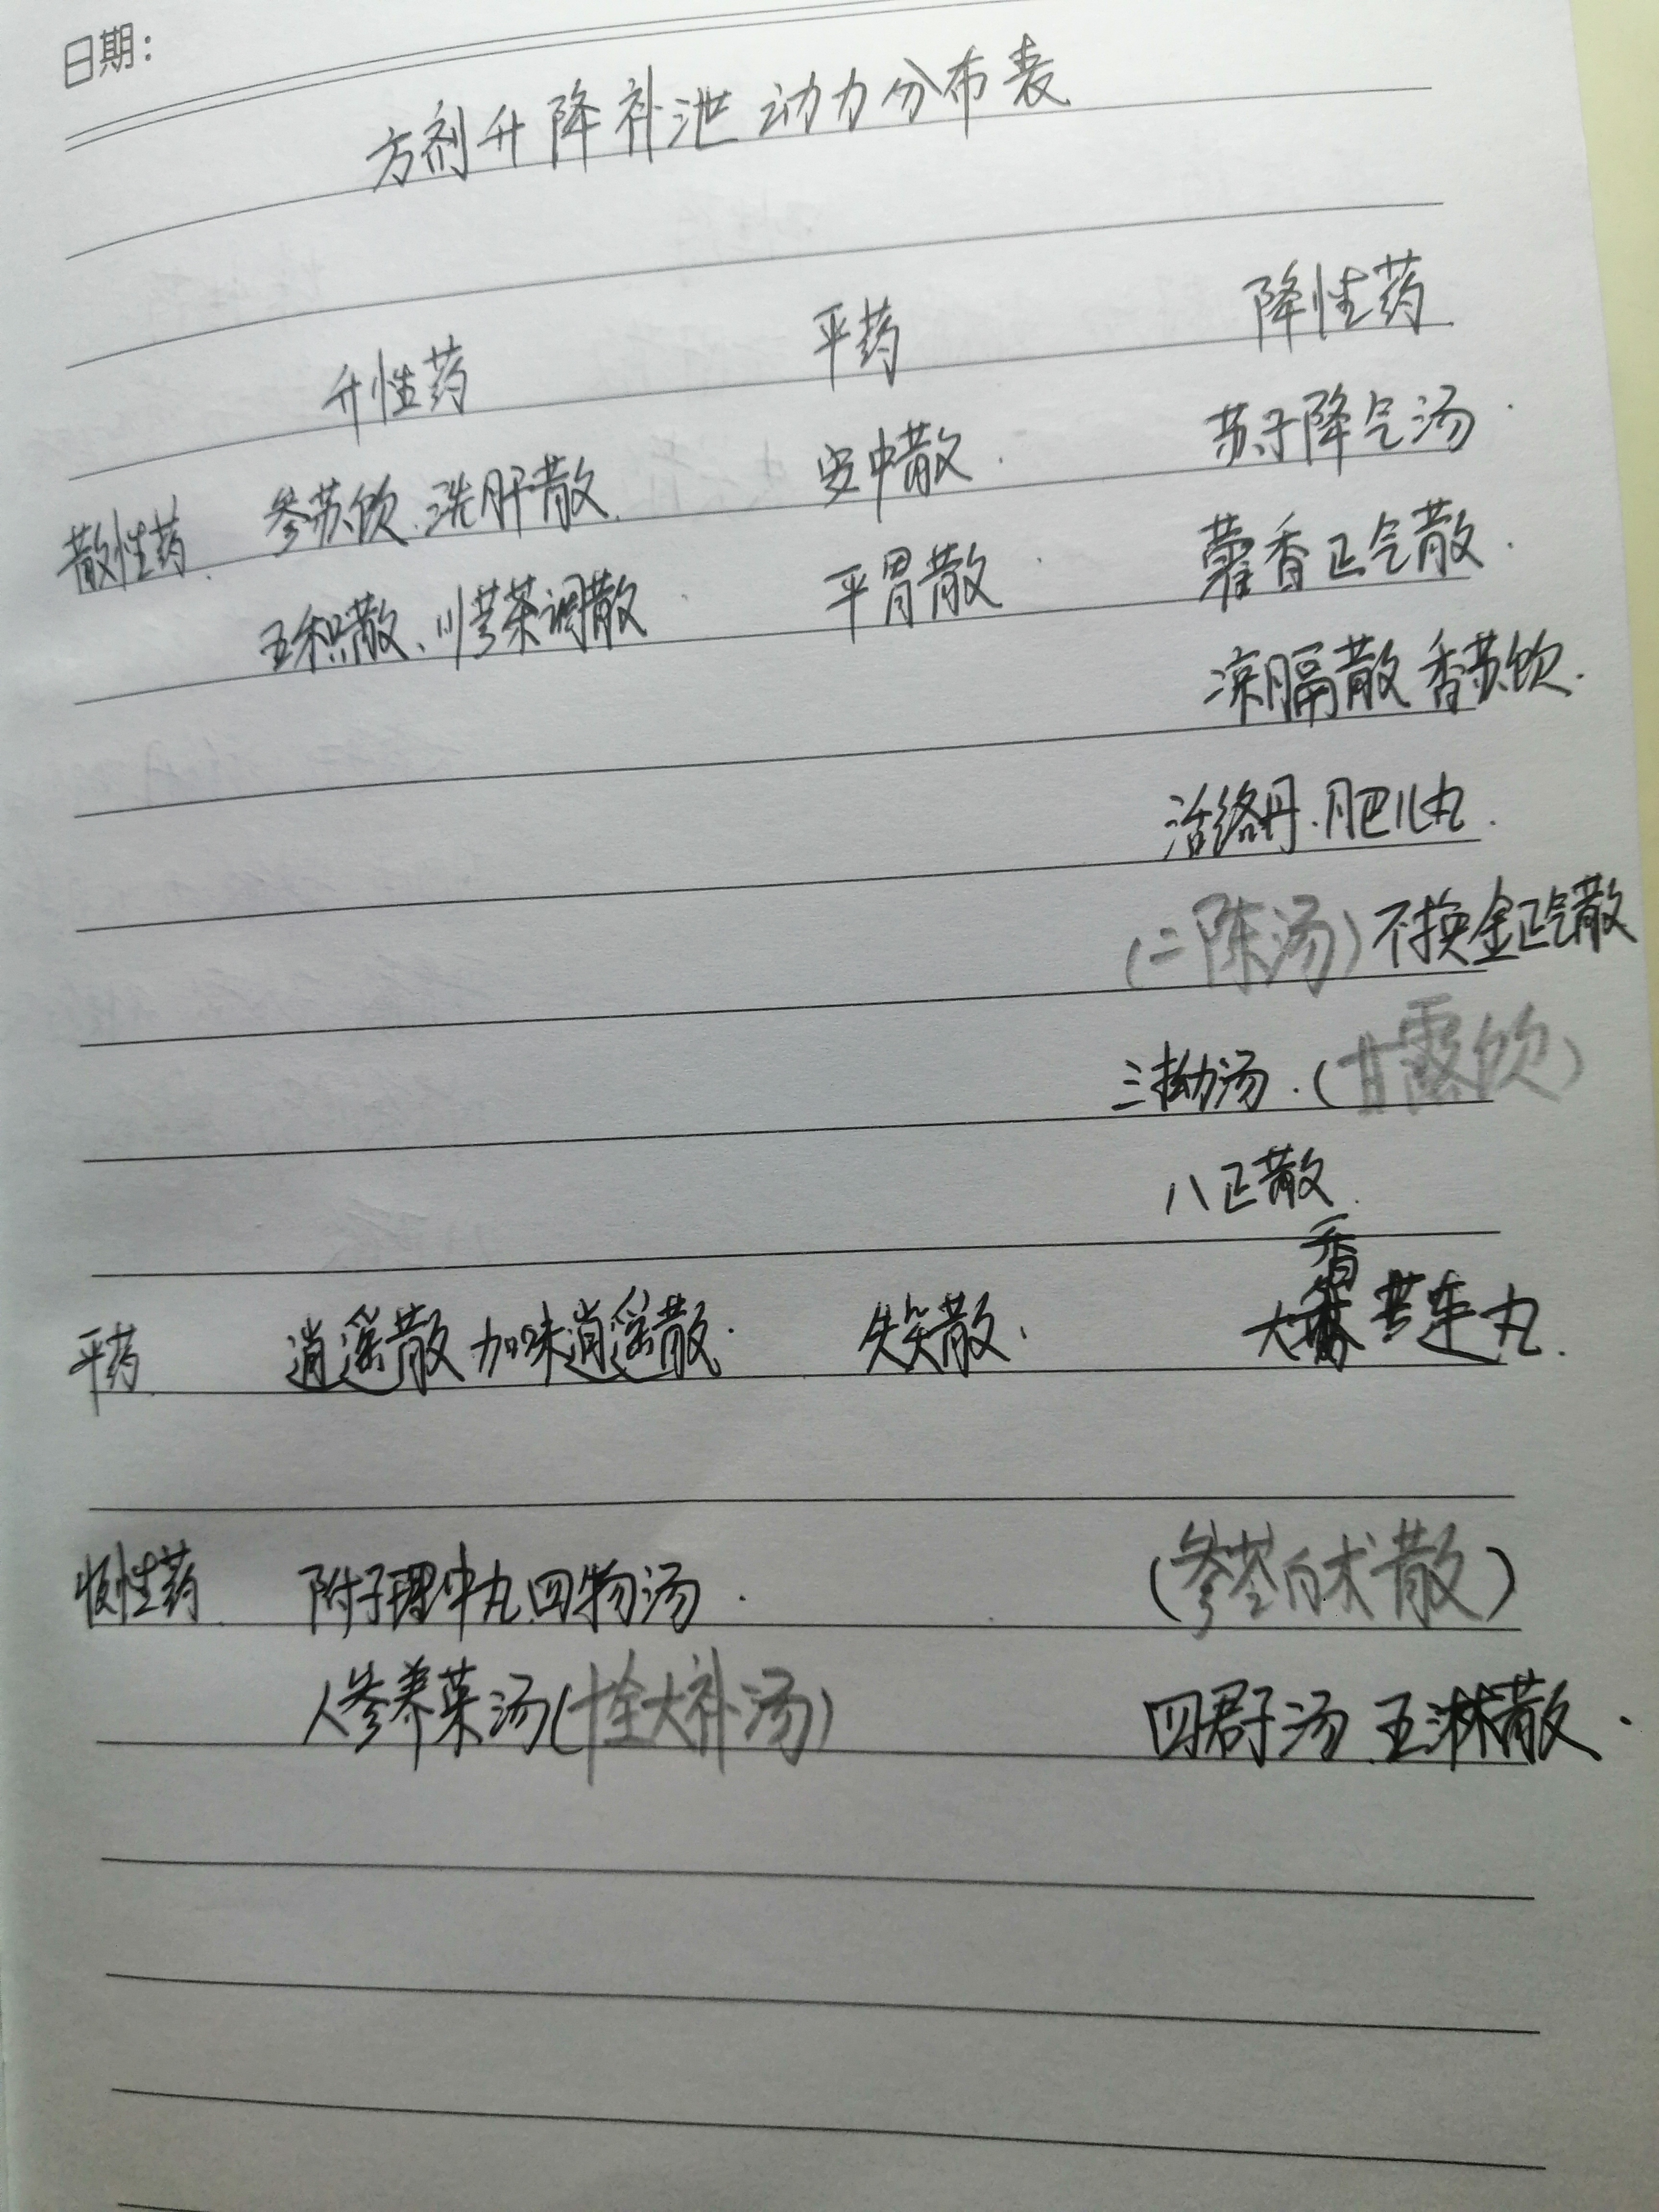 日期：
方剂升降补泄动力分布表
升性药 平药 降性药
散性药 参苏饮、洗肝散 安中散 苏子降气汤
五积散、川芎茶调散 平胃散 藿香正气散
凉膈散 香苏饮
活络丹、肥儿丸
(二陈汤) 不换金正气散
三拗汤、(甘露饮)
八正散
平药 逍遥散 加味逍遥散 失笑散、 大香连丸
性药 附子理中丸 四物汤 (参苓白术散)
人参养荣汤(十全大补汤) 四君子汤 五淋散